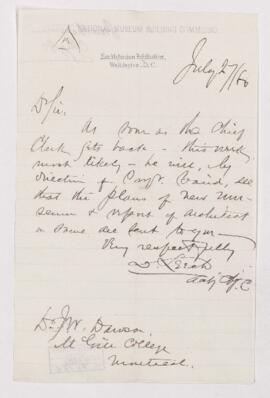 NATIONAL MUSEUM BUILDING
Smithsonian Institution,
Washington, D.C.
July 27/80
D Sir.
As soon as the Chief
Clerk gets back - this week,
most likely - he will, by
direction of Prof. Baird, see
that the plans of new mu-
seum & report of architect
on same are sent to you -
Very respectfully
D Leech
Dr J. W. Dawson
McGill College
Montreal.